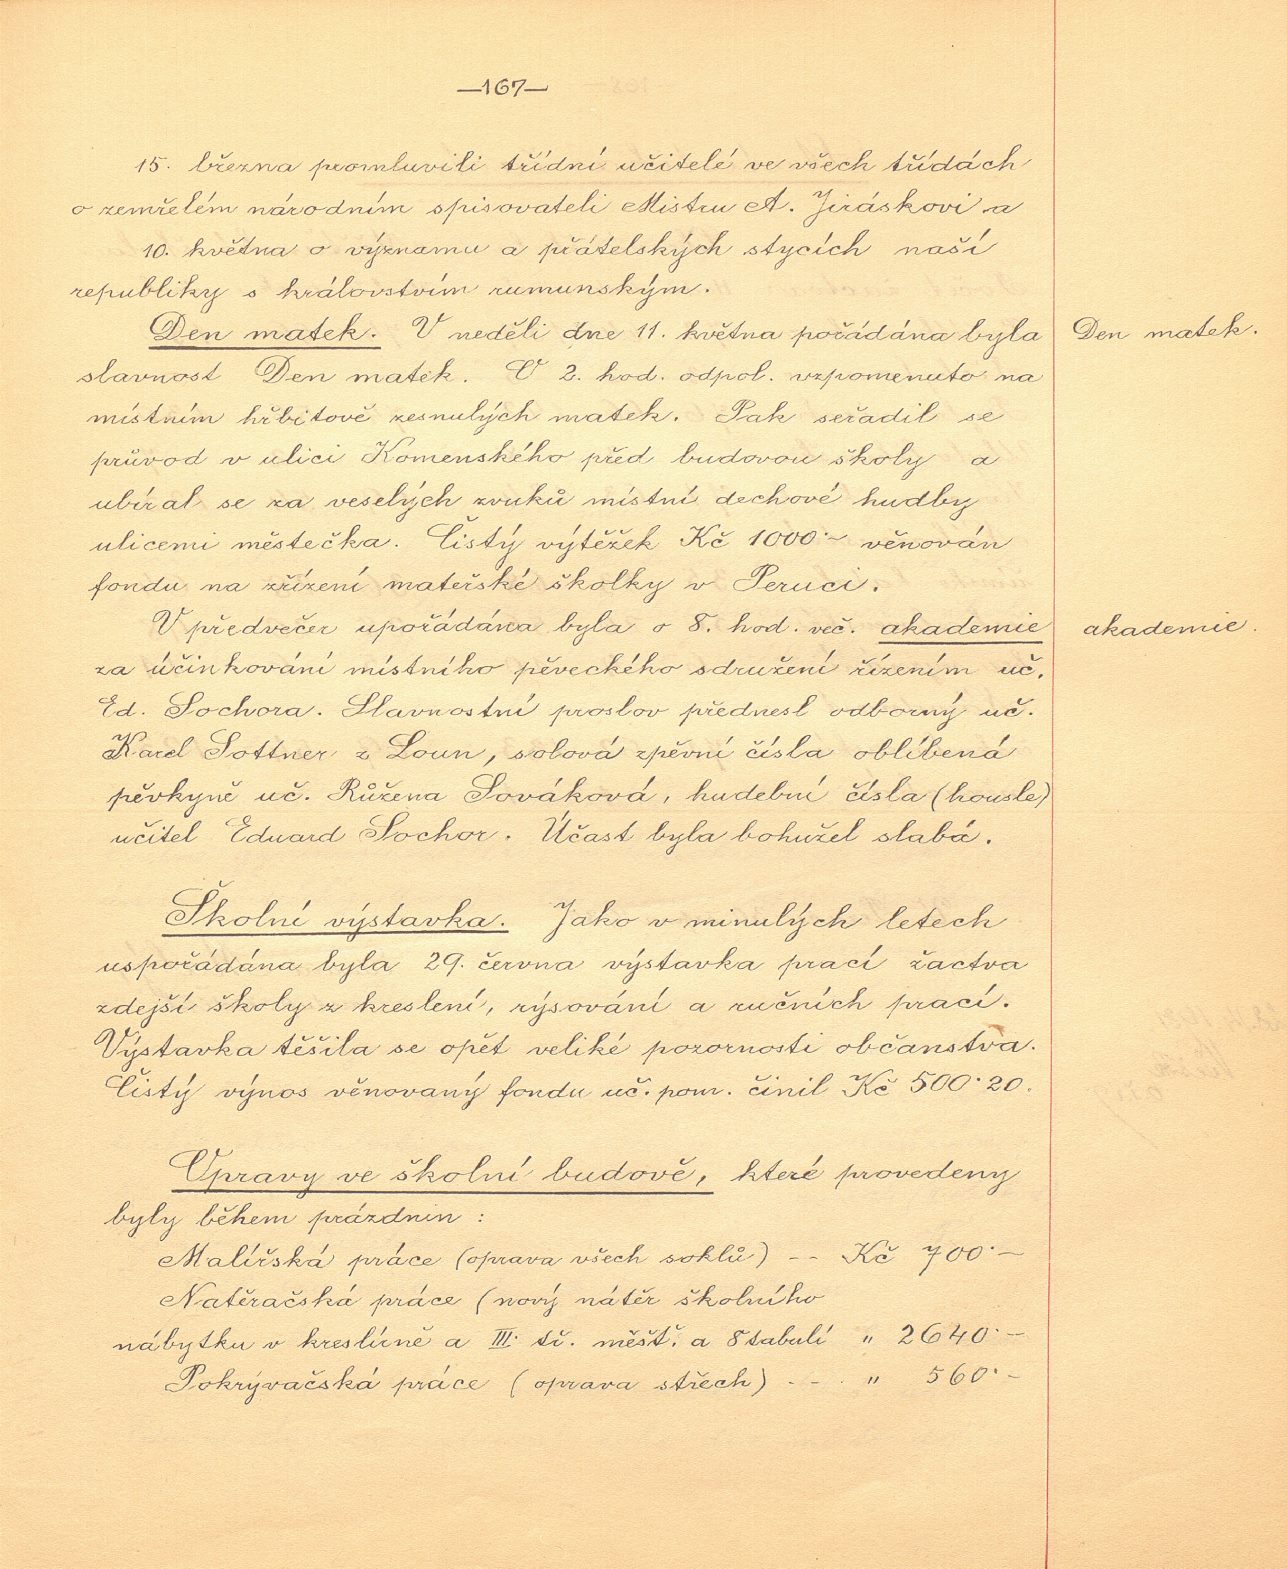 —167—
15. března promluvili třídní učitelé ve všech třídách
o zemřelém národním spisovateli Mistru A. Jiráskovi a
10. května o významu a přátelských stycích naší
republiky s královstvím rumunským.
Den matek. V neděli dne 11. května pořádána byla
Den matek.
slavnost Den matek. V 2. hod. odpol. vzpomenuto na
místním hřbitově zesnulých matek. Pak seřadil se
průvod v ulici Komenského před budovou školy a
ubíral se za veselých zvuků místní dechové hudby
ulicemi městečka. Čistý výtěžek Kč 1000·- věnován
fondu na zřízení mateřské školky v Peruci.
V předvečer upořádána byla o 8. hod. več. akademie
akademie.
za účinkování místního pěveckého sdružení řízením uč.
Ed. Sochora. Slavnostní proslov přednesl odborný uč.
Karel Sottner z Loun, solová zpěvní čísla oblíbená
pěvkyně uč. Růžena Sováková, hudební čísla (housle)
učitel Eduard Sochor. Účast byla bohužel slabá.
Školní výstavka. Jako v minulých letech
uspořádána byla 29. června výstavka prací žactva
zdejší školy z kreslení, rýsování a ručních prací.
Výstavka těšila se opět veliké pozornosti občanstva.
Čistý výnos věnovaný fondu uč. pom. činil Kč 500·20.
Úpravy ve školní budově, které provedeny
byly během prázdnin:
Malířská práce (oprava všech soklů) -- Kč 700·-
Natěračská práce (nový nátěr školního
nábytku v kreslírně a III. tř. měšť. a 8 tabulí " 2640·-
Pokrývačská práce (oprava střech) --- " 560·-